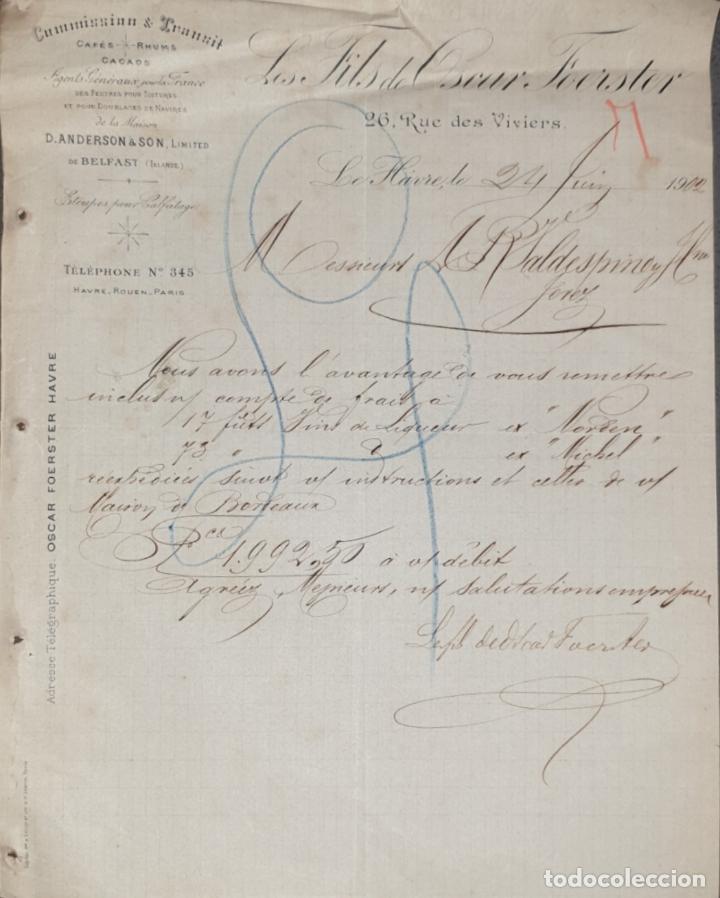 Commission & Transit
CAFÉS - RHUMS
CACAOS
Agents Généraux pour la France
DES FEUTRES POUR TOITURES
ET POUR DOUBLAGES DE NAVIRES
de la Maison
D. ANDERSON & SON, LIMITED
DE BELFAST (IRLANDE)
Etoupes pour Calfatage
TÉLÉPHONE Nº 345
HAVRE - ROUEN - PARIS
Adresse Télégraphique: OSCAR FOERSTER HAVRE
Les Fils de Oscar Foerster
26, Rue des Viviers.
Le Hâvre, le 24 Juin 1902
Messieurs A R Valdespino y Hno
Jerez
Nous avons l'avantage de vous remettre
inclus n/ compte de frais à
17 fûts Vins de Liqueur ex "Norden"
73 " " ex "Michel"
réexpédiés suivt v/ instructions et celles de v/
Maison de Bordeaux
Fcs 1.992.50 à v/ débit
Agréez, Messieurs, n/ salutations empressées
Les fils de Oscar Foerster
todocoleccion